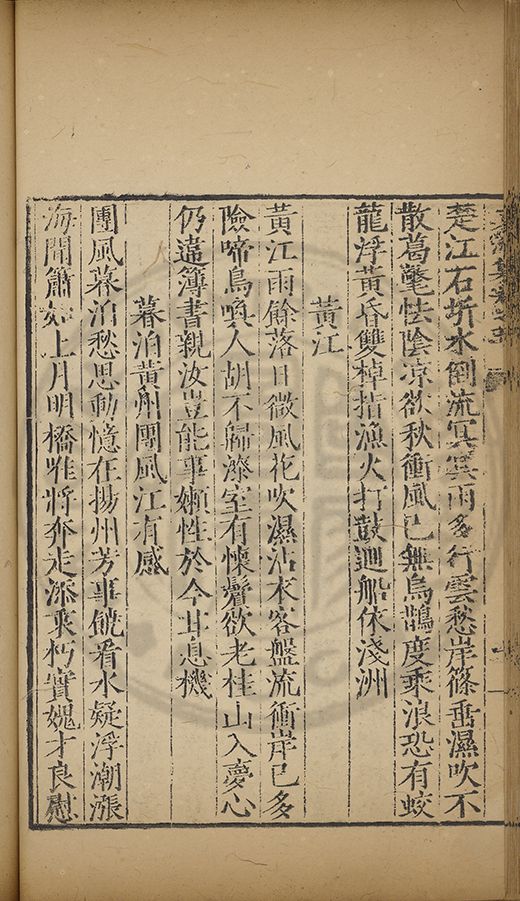 楚江石圻水倒流冥冥雨多行雲愁岸篠垂濕吹不
散葛氅怯陰涼欲秋衝風已無烏鵲度乘浪恐有蛟
龍浮黃昏雙棹指漁火打鼓迴船依淺洲
黃江
黃江雨餘落日微風花吹濕沾來客盤流衝岸已多
險啼鳥喚人胡不歸漆室有懷鬢欲老桂山入夢心
仍違簿書親汝豈能事嬾性於今甘息機
暮泊黃州團風江有感
團風暮泊愁思動憶在揚州芳事饒看水疑浮潮漲
海聞簫如上月明橋唯將奔走添衰朽實媿才良慰